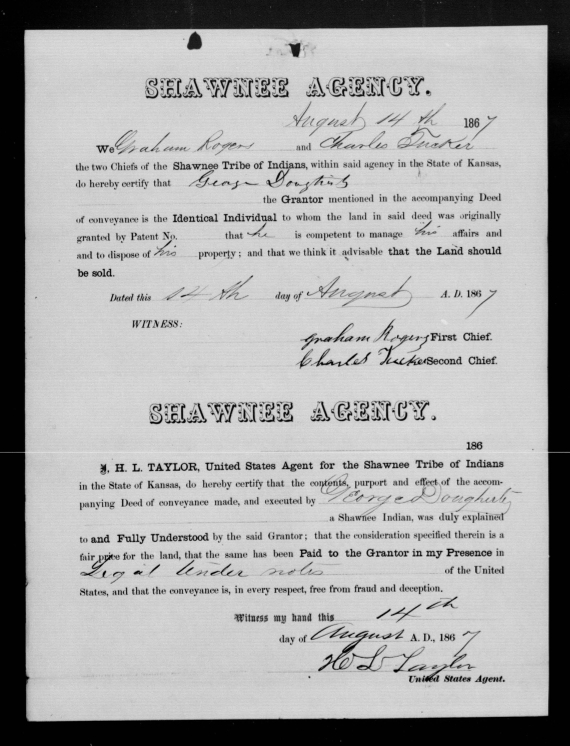 SHAWNEE AGENCY.
August 14 th 1867
We Graham Rogers and Charles Tucker
the two Chiefs of the Shawnee Tribe of Indians, within said agency in the State of Kansas,
do hereby certify that George Dougherty
the Grantor mentioned in the accompanying Deed
of conveyance is the Identical Individual to whom the land in said deed was originally
granted by Patent No. that he is competent to manage his affairs and
and to dispose of his property; and that we think it advisable that the Land should
be sold.
Dated this 14 th day of August A. D. 1867
WITNESS:
Graham Rogers First Chief.
Charles Tucker Second Chief.
SHAWNEE AGENCY.
186
I, H. L. TAYLOR, United States Agent for the Shawnee Tribe of Indians
in the State of Kansas, do hereby certify that the contents, purport and effect of the accom-
panying Deed of conveyance made, and executed by George Dougherty
a Shawnee Indian, was duly explained
to and Fully Understood by the said Grantor; that the consideration specified therein is a
fair price for the land, that the same has been Paid to the Grantor in my Presence in
Legal Tender notes of the United
States, and that the conveyance is, in every respect, free from fraud and deception.
Witness my hand this 14th
day of August A. D., 1867
H L Taylor
United States Agent.